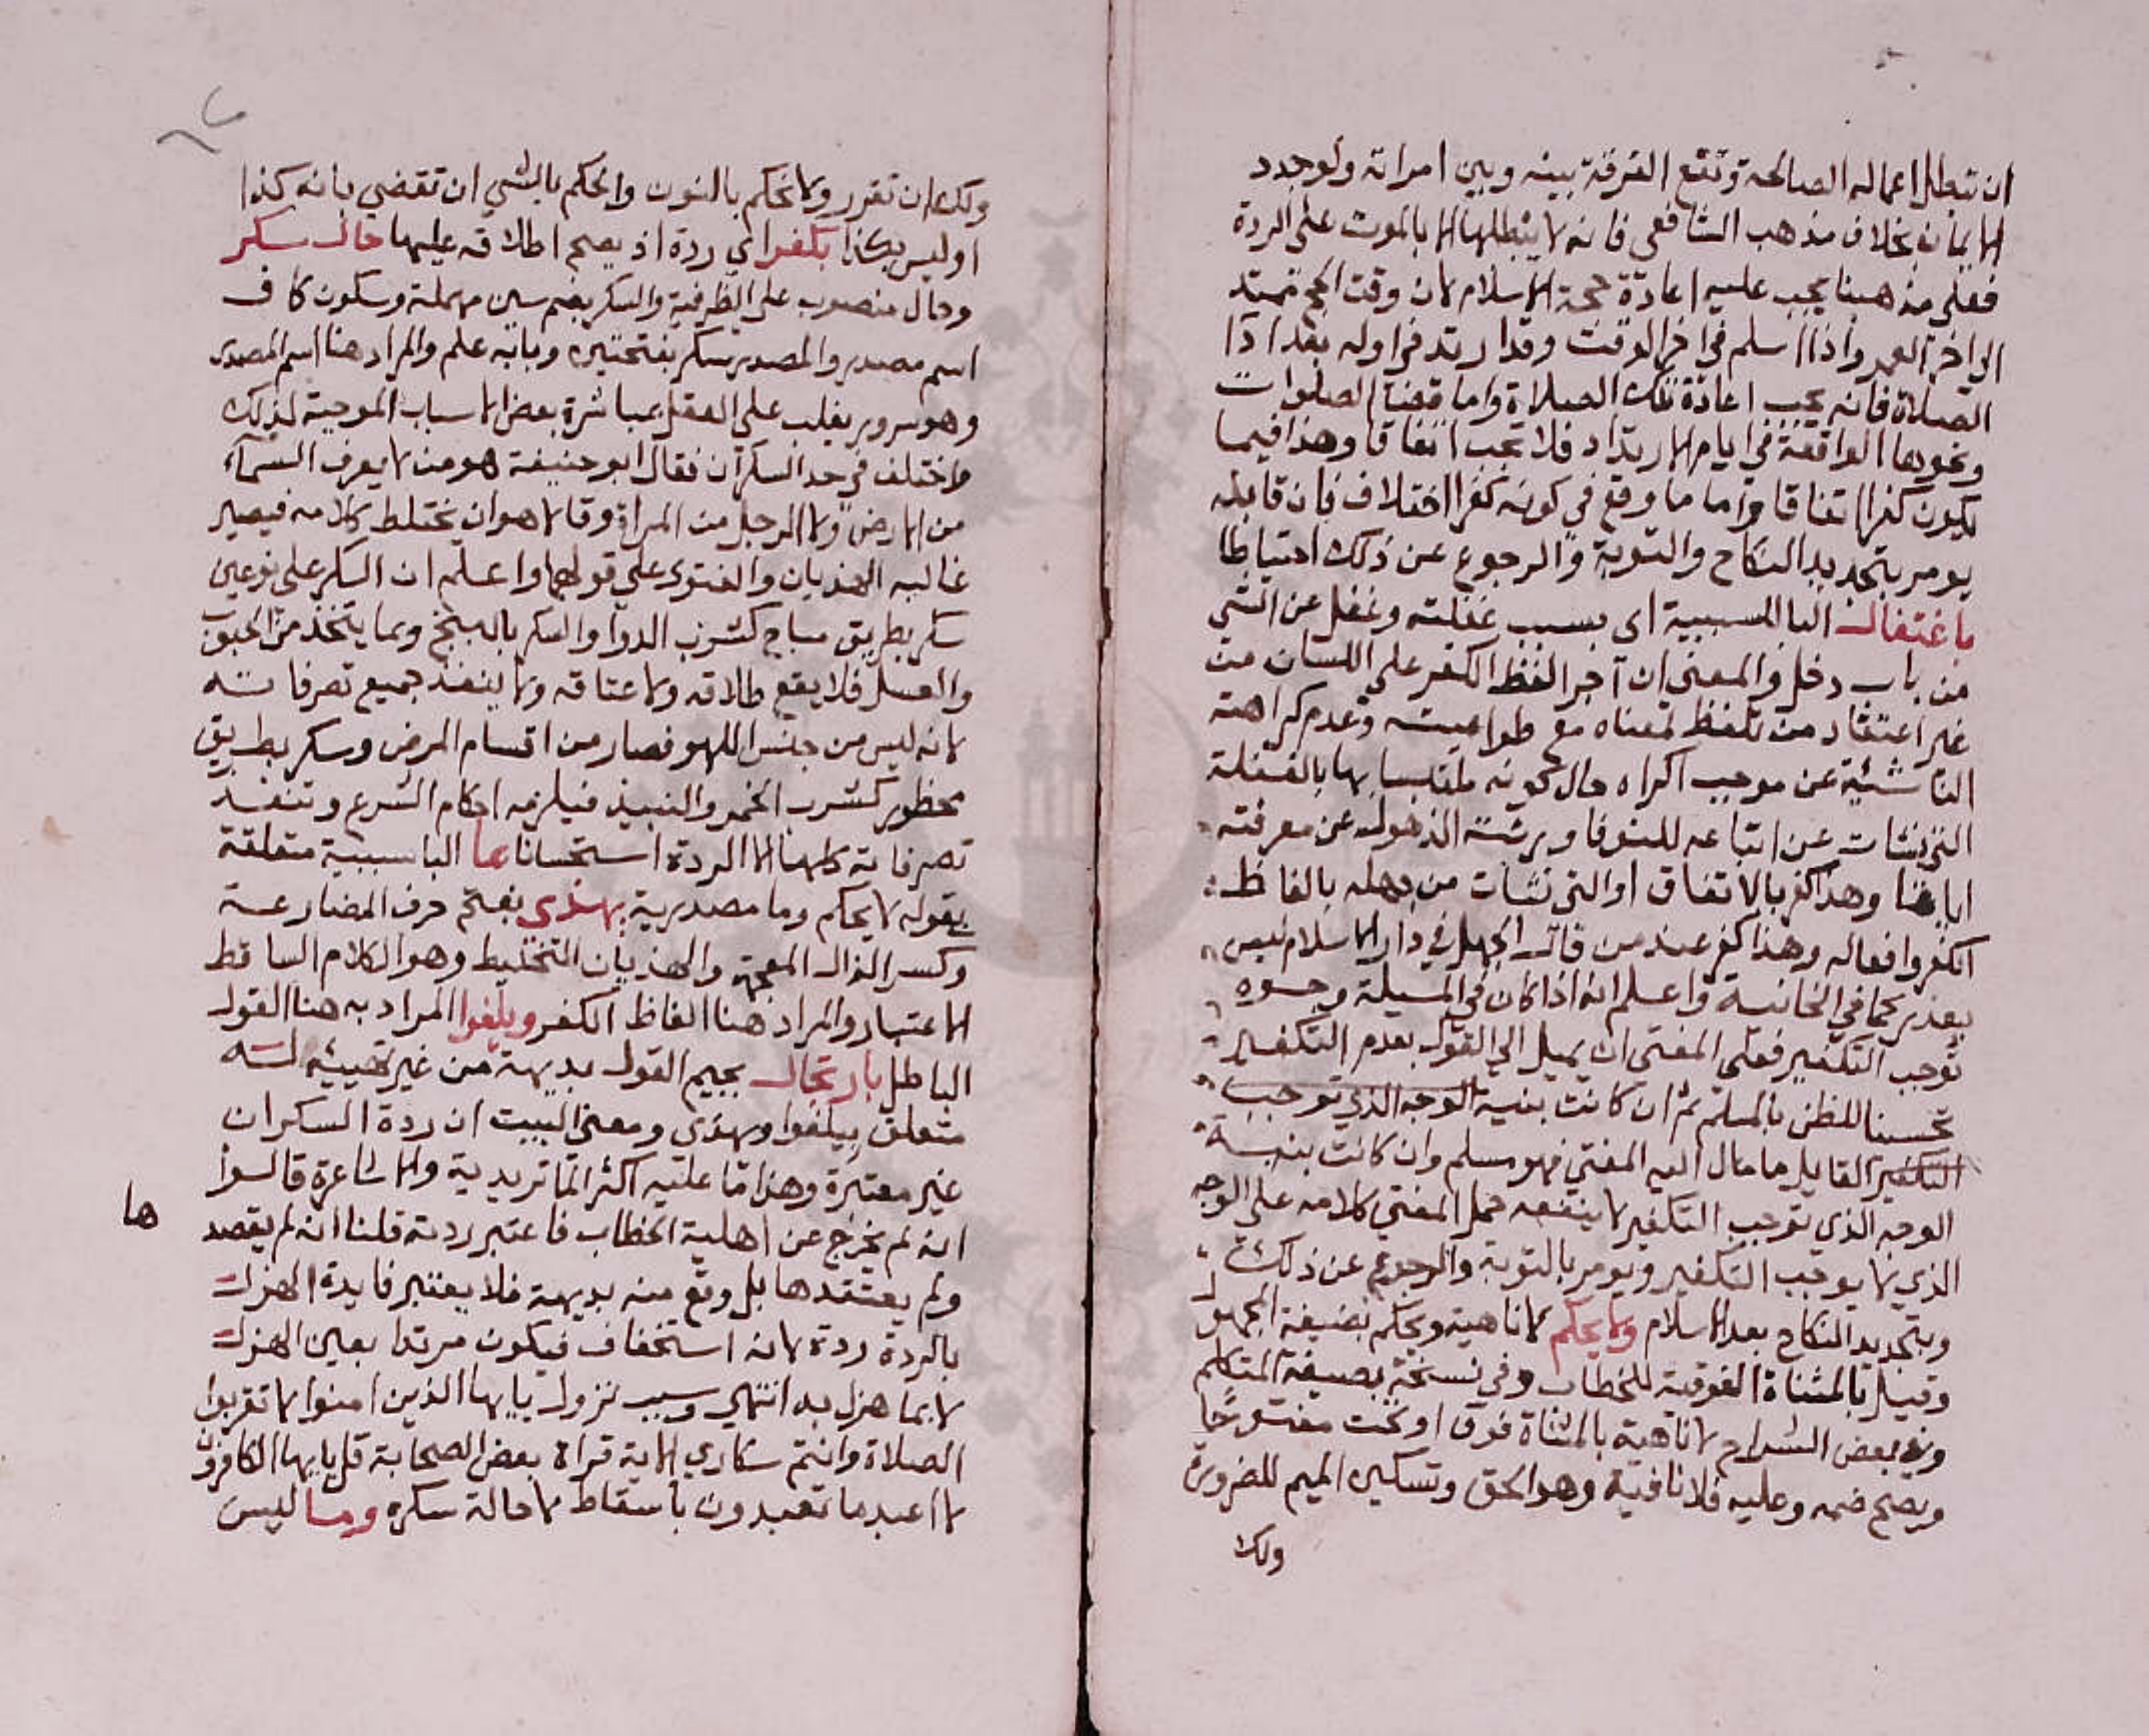 ان تبطل اعماله الصالحة وتقع الفرقة بينه وبين امراته ولو جدد
الايمان بخلاف مذهب الشافعي فانه لا يبطلها الا بالموت على الردة
فعلى مذهبنا يجب عليه اعادة حجة الاسلام لان وقت الحج ممتد
الى اخر العمر واذا اسلم في اخر الوقت وقد ارتد في اوله بعد اذا
الصلاة فانه يجب اعادة تلك الصلاة واما قضا الصلوات
ونحوها الواقعة في ايام الارتداد فلا تجب اتفاقا وهذا فيما
يكون كفرا اتفاقا واما ما وقع في كونه كفرا اختلاف فان قايله
يومر بتجديد النكاح والتوبة والرجوع عن ذلك احتياطا
باغتفال البا السببية اى بسبب غفلته وغفل عن الشي
من باب دخل والمعنى ان اجرا لفظ الكفر على اللسان من
غير اعتقاد من تلفظ لمعناه مع طواعيته وعدم كراهته
الناشئة عن موجب اكراه حال كونه ملتبسا بها بالغفلة
التي نشات عن اتباعه للنوفا وبرئته الذهول عن معرفته
وهذا كفر بالاتفاق او التي نشات من جهله بالفاظ
الكفر وافعاله وهذا كفر عند من قال الجهل في دار الاسلام ليس
بعذر كما في الخانية واعلم انه اذا كان في المسيلة وجوه
توجب التكفير فعلى المفتى ان يميل الى القول بعدم التكفير
تحسينا للظن بالمسلم ثم ان كانت بنية الوجه الذي توجب
التكفير القايل ما مال اليه المفتي فهو مسلم وان كانت بنية
الوجه الذي توجب التكفير لا ينفعه حمل المفتي كلامه على الوجه
الذي لا يوجب التكفير ويومر بالتوبة والرجوع عن ذلك
وبتجديد النكاح بعد الاسلام ولا يحكم لا ناهية ويحكم بصيغة المجهول
وقيل بالمثناة الفوقية للخطاب وفي نسخة بصيغة المتكلم
وفي بعض الشراح لا ناهية بالمثناة فوق او تحت مفتوحا
ويصح ضمه وعليه فلا نافية وهو الحق وتسكين الميم للضرورة
ولك
ولك ان تقرر ولا نحكم بالنون والحكم بالشي ان تقضي بانه كذا
او ليس بكذا بكفر اي ردة اذ يصح اطلاقه عليها حال سكر
وحال منصوب على الظرفية والسكر بضم سين مهملة وسكون كاف
اسم مصدر والمصدر سكر بفتحتين وبابه علم والمراد هنا اسم المصدر
وهو سرور يغلب على العقل عبا شرة بعض الاسباب الموجبة لذلك
واختلف في حد السكران فقال ابو حنيفة هو من لا يعرف السماء
من الارض ولا الرجل من المراة وقالا هو ان يختلط كلامه فيصير
غالبه الهذيان والفتوى على قولهما واعلم ان السكر على نوعين
سكر بطريق مباح كشرب الدوا والسكر بالبنج وبما يتخذ من الحبوب
والعسل فلا يقع طلاقه ولا عتاقه ولا ينفذ جميع تصرفاته
لانه ليس من جنس اللهو فصار من اقسام المرض وسكر بطريق
محظور كشرب الخمر والنبيذ فيلزمه احكام الشرع وتنفذ
تصرفاته كلها الا الردة استحسانا بما البا سببية متعلقة
بقوله لا يحكم وما مصدرية يهذى بفتح حرف المضارعة
وكسر الذال المعجمة والهذيان التخليط وهو الكلام الساقط
الاعتبار والمراد هنا الفاظ الكفر ويلغوا المراد به هنا القول
الباطل بارتجال بجيم القول بديهة من غير تهيئة له
متعلق بيلغوا ويهذى ومعنى البيت ان ردة السكران
غير معتبرة وهذا ما عليه اكثر الماتريدية والاشاعرة قالوا
انه لم يخرج عن اهلية الخطاب فاعتبر ردته قلنا انه لم يقصد
ها
ولم يعتقدها بل وقع منه بديهة فلا يعتبر فايدة الهزل
بالردة ردة لانه استخفاف فيكون مرتدا بعين الهزل
لا بما هزل به انتهى وسبب نزول يايها الذين امنوا لا تقربوا
الصلاة وانتم سكاري الاية قراة بعض الصحابة قل يايها الكافرون
لا اعبد ما تعبدون باسقاط لا حالة سكره وما ليس